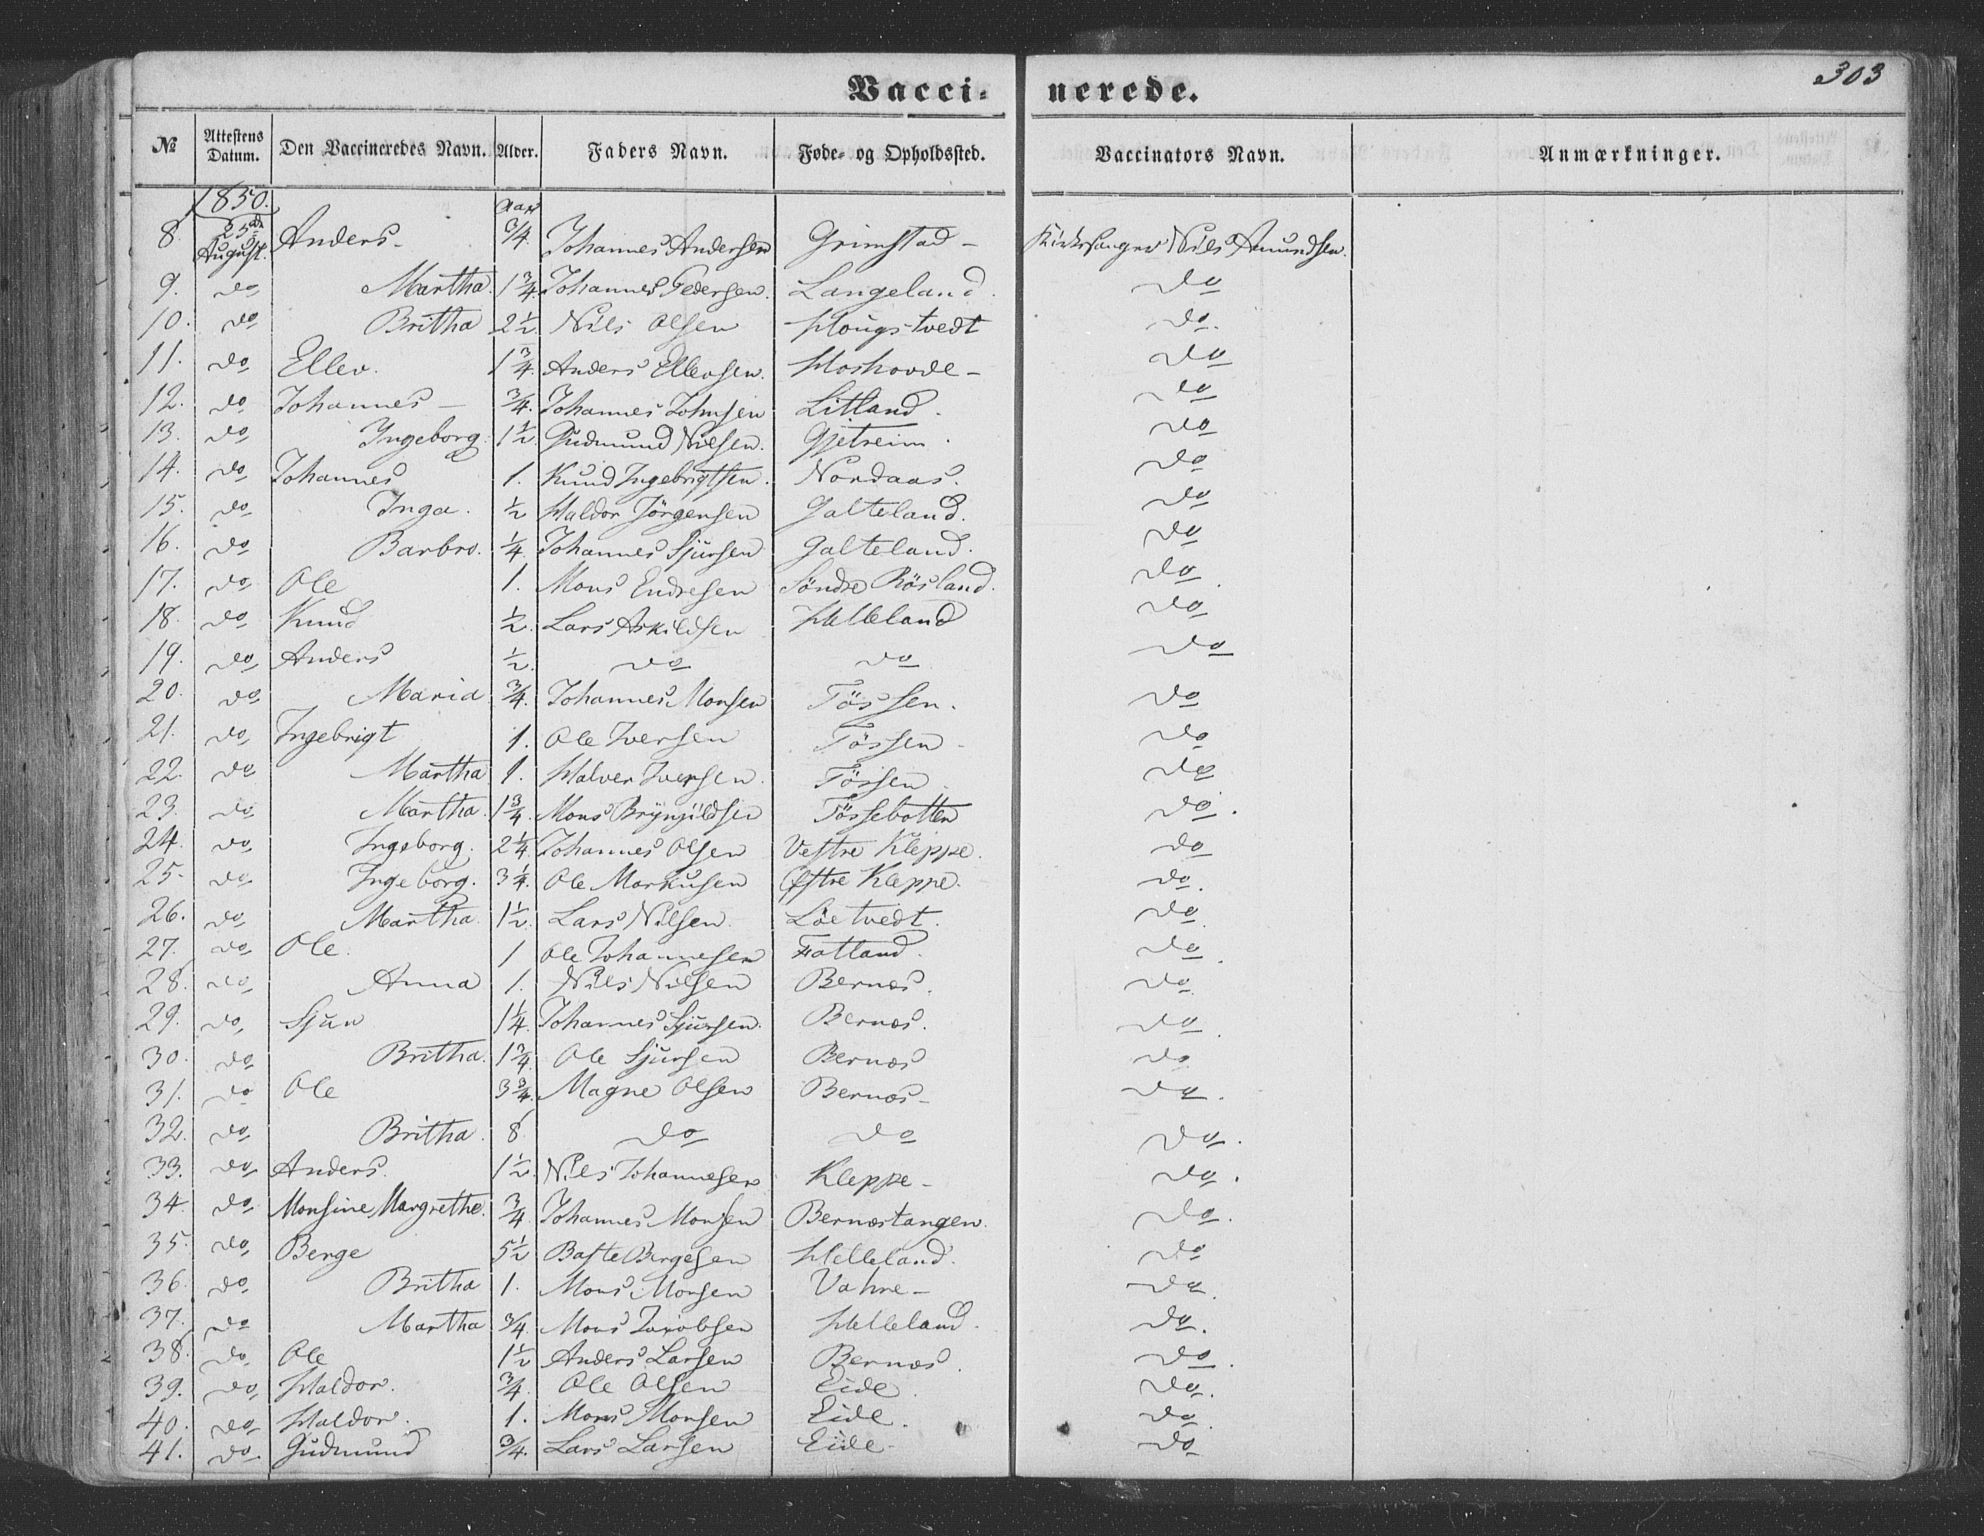 303
Vacci- nerede.
№ Attestens Datum. Den Vaccineredes Navn. Alder. Faders Navn. Føde- og Opholdssted. Vaccinators Navn. Anmærkninger.
1850. Aar
8. 25de August. Anders - 3/4 Johannes Andersen Grimstad - Kirkesanger Nils Amundsen.
9. do Martha. 1 3/4 Johannes Pedersen. Langeland. do
10. do Britha 2 1/2 Nils Olsen Hougstvedt do
11. do Ellev. 1 3/4 Anders Ellevsen. Hoshovde - do
12. do Johannes - 3/4 Johannes Johnsen Litland. do
13. do Ingeborg. 1 1/2 Gudmund Nilsen. Gjetreim. do
14. do Johannes 1. Knud Ingebrigtsen. Nordaas. do
15. do Inga. 1/2 Haldor Jörgensen Galteland. do
16. do Barbro. 1/4 Johannes Sjursen Galteland. do
17. do Ole 1. Mons Endresen Söndre Rösland. do
18. do Knud 1/2 Lars Askildsen Helleland do
19. do Anders 1/2 do do do
20. do Maria 3/4 Johannes Monsen Tössen. do
21. do Ingebrigt 1. Ole Iversen Tössen - do
22. do Martha 1. Halver Iversen. Tössen do
23. do Martha. 1 3/4 Mons Brynjildsen Tössebotten do
24. do Ingeborg. 2 1/4 Johannes Olsen Vestre Kleppe. do
25. do Ingeborg. 3 1/4 Ole Markusen Østre Kleppe. do
26. do Martha. 1 1/2 Lars Nilsen. Löetvedt. do
27. do Ole. 1 Ole Johannesen Fatland. do
28. do Anna 1. Nils Nilsen Bernæs. do
29. do Sjur 1 1/4 Johannes Sjursen. Bernæs. do
30. do Britha. 1 3/4 Ole Sjursen Bernæs do
31. do Ole 3 3/4 Magne Olsen Bernæs - do
32. do Britha. 8 do do do
33. do Anders. 1 1/2 Nils Johannesen Kleppe - do
34. do Monsine Margrethe. 3/4 Johannes Monsen Bernæstangen. do
35. do Berge 5 1/2 Baste Bergesen Helleland. do
36. do Britha 1. Mons Monsen Vahre - do
37. do Martha 3/4 Mons Jacobsen Helleland. do
38. do Ole 1 1/2 Anders Larsen Bernæs. do
39. do Haldor. 3/4 Ole Olsen Eide. do
40. do Haldor. 1. Mons Monsen Eide. do
41. do Gudmund 3/4 Lars Larsen Eide - do